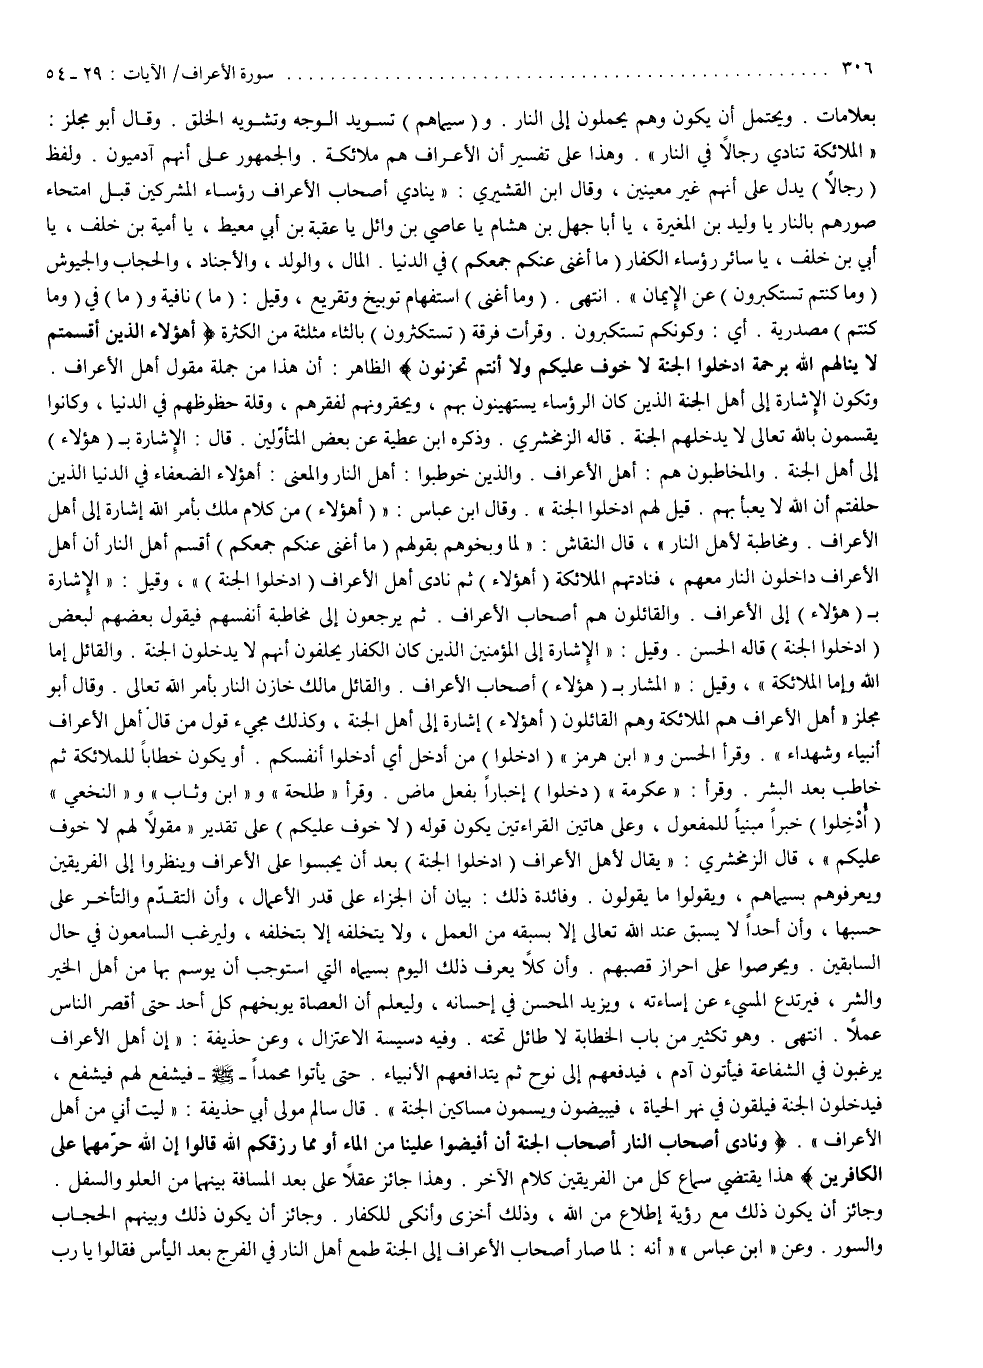 ٣٠٦ ........................................ سورة الأعراف/ الآيات : ٢٩ ـ ٥٤
بعلامات . ويحتمل أن يكون وهم يحملون إلى النار . و ( سيماهم ) تسويد الوجه وتشويه الخلق . وقال أبو مجلز :
« الملائكة تنادي رجالاً في النار » . وهذا على تفسير أن الأعراف هم ملائكة . والجمهور على أنهم آدميون . ولفظ
( رجالاً ) يدل على أنهم غير معينين ، وقال ابن القشيري : « ينادي أصحاب الأعراف رؤساء المشركين قبل امتحاء
صورهم بالنار يا وليد بن المغيرة ، يا أبا جهل بن هشام يا عاصي بن وائل يا عقبة بن أبي معيط ، يا أمية بن خلف ، يا
أبي بن خلف ، يا سائر رؤساء الكفار ( ما أغنى عنكم جمعكم ) في الدنيا . المال ، والولد ، والأجناد ، والحجاب والجيوش
( وما كنتم تستكبرون ) عن الإيمان » . انتهى . ( وما أغنى ) استفهام توبيخ وتقريع ، وقيل : ( ما ) نافية و ( ما ) في ( وما
كنتم ) مصدرية . أي : وكونكم تستكبرون . وقرأت فرقة ( تستكثرون ) بالثاء مثلثة من الكثرة ﴿ أهؤلاء الذين أقسمتم
لا ينالهم الله برحمة ادخلوا الجنة لا خوف عليكم ولا أنتم تحزنون ﴾ الظاهر : أن هذا من جملة مقول أهل الأعراف .
وتكون الإشارة إلى أهل الجنة الذين كان الرؤساء يستهينون بهم ، ويحقرونهم لفقرهم ، وقلة حظوظهم في الدنيا ، وكانوا
يقسمون بالله تعالى لا يدخلهم الجنة . قاله الزمخشري . وذكره ابن عطية عن بعض المتأوّلين . قال : الإشارة بـ ( هؤلاء )
إلى أهل الجنة . والمخاطبون هم : أهل الأعراف . والذين خوطبوا : أهل النار والمعنى : أهؤلاء الضعفاء في الدنيا الذين
حلفتم أن الله لا يعبأ بهم . قيل لهم ادخلوا الجنة » . وقال ابن عباس : « ( أهؤلاء ) من كلام ملك بأمر الله إشارة إلى أهل
الأعراف . ومخاطبة لأهل النار » ، قال النقاش : « لما وبخوهم بقولهم ( ما أغنى عنكم جمعكم ) أقسم أهل النار أن أهل
الأعراف داخلون النار معهم ، فنادتهم الملائكة ( أهؤلاء ) ثم نادى أهل الأعراف ( ادخلوا الجنة ) » ، وقيل : « الإشارة
بـ ( هؤلاء ) إلى الأعراف . والقائلون هم أصحاب الأعراف . ثم يرجعون إلى مخاطبة أنفسهم فيقول بعضهم لبعض
( ادخلوا الجنة ) قاله الحسن . وقيل : « الإشارة إلى المؤمنين الذين كان الكفار يحلفون أنهم لا يدخلون الجنة . والقائل إما
الله وإما الملائكة » ، وقيل : « المشار بـ ( هؤلاء ) أصحاب الأعراف . والقائل مالك خازن النار بأمر الله تعالى . وقال أبو
مجلز « أهل الأعراف هم الملائكة وهم القائلون ( أهؤلاء ) إشارة إلى أهل الجنة ، وكذلك مجيء قول من قال أهل الأعراف
أنبياء وشهداء » . وقرأ الحسن و « ابن هرمز » ( ادخلوا ) من أدخل أي أدخلوا أنفسكم . أو يكون خطاباً للملائكة ثم
خاطب بعد البشر . وقرأ : « عكرمة » ( دخلوا ) إخباراً بفعل ماض . وقرأ « طلحة » و « ابن وثاب » و « النخعي »
( أُدْخِلوا ) خبراً مبنياً للمفعول ، وعلى هاتين القراءتين يكون قوله ( لا خوف عليكم ) على تقدير « مقولاً لهم لا خوف
عليكم » ، قال الزمخشري : « يقال لأهل الأعراف ( ادخلوا الجنة ) بعد أن يحبسوا على الأعراف وينظروا إلى الفريقين
ويعرفوهم بسيماهم ، ويقولوا ما يقولون . وفائدة ذلك : بيان أن الجزاء على قدر الأعمال ، وأن التقدّم والتأخر على
حسبها ، وأن أحداً لا يسبق عند الله تعالى إلا بسبقه من العمل ، ولا يتخلفه إلا بتخلفه ، وليرغب السامعون في حال
السابقين . ويحرصوا على احراز قصبهم . وأن كلاً يعرف ذلك اليوم بسيماه التي استوجب أن يوسم بها من أهل الخير
والشر ، فيرتدع المسيء عن إساءته ، ويزيد المحسن في إحسانه ، وليعلم أن العصاة يوبخهم كل أحد حتى أقصر الناس
عملاً . انتهى . وهو تكثير من باب الخطابة لا طائل تحته . وفيه دسيسة الاعتزال ، وعن حذيفة : « إن أهل الأعراف
يرغبون في الشفاعة فيأتون آدم ، فيدفعهم إلى نوح ثم يتدافعهم الأنبياء . حتى يأتوا محمداً ـ ﷺ ـ فيشفع لهم فيشفع ،
فيدخلون الجنة فيلقون في نهر الحياة ، فيبيضون ويسمون مساكين الجنة » . قال سالم مولى أبي حذيفة : « ليت أني من أهل
الأعراف » . ﴿ ونادى أصحاب النار أصحاب الجنة أن أفيضوا علينا من الماء أو مما رزقكم الله قالوا إن الله حرّمهما على
الكافرين ﴾ هذا يقتضي سماع كل من الفريقين كلام الآخر . وهذا جائز عقلاً على بعد المسافة بينهما من العلو والسفل .
وجائز أن يكون ذلك مع رؤية إطلاع من الله ، وذلك أخزى وأنكى للكفار . وجائز أن يكون ذلك وبينهم الحجاب
والسور . وعن « ابن عباس » « أنه : لما صار أصحاب الأعراف إلى الجنة طمع أهل النار في الفرج بعد اليأس فقالوا يا رب